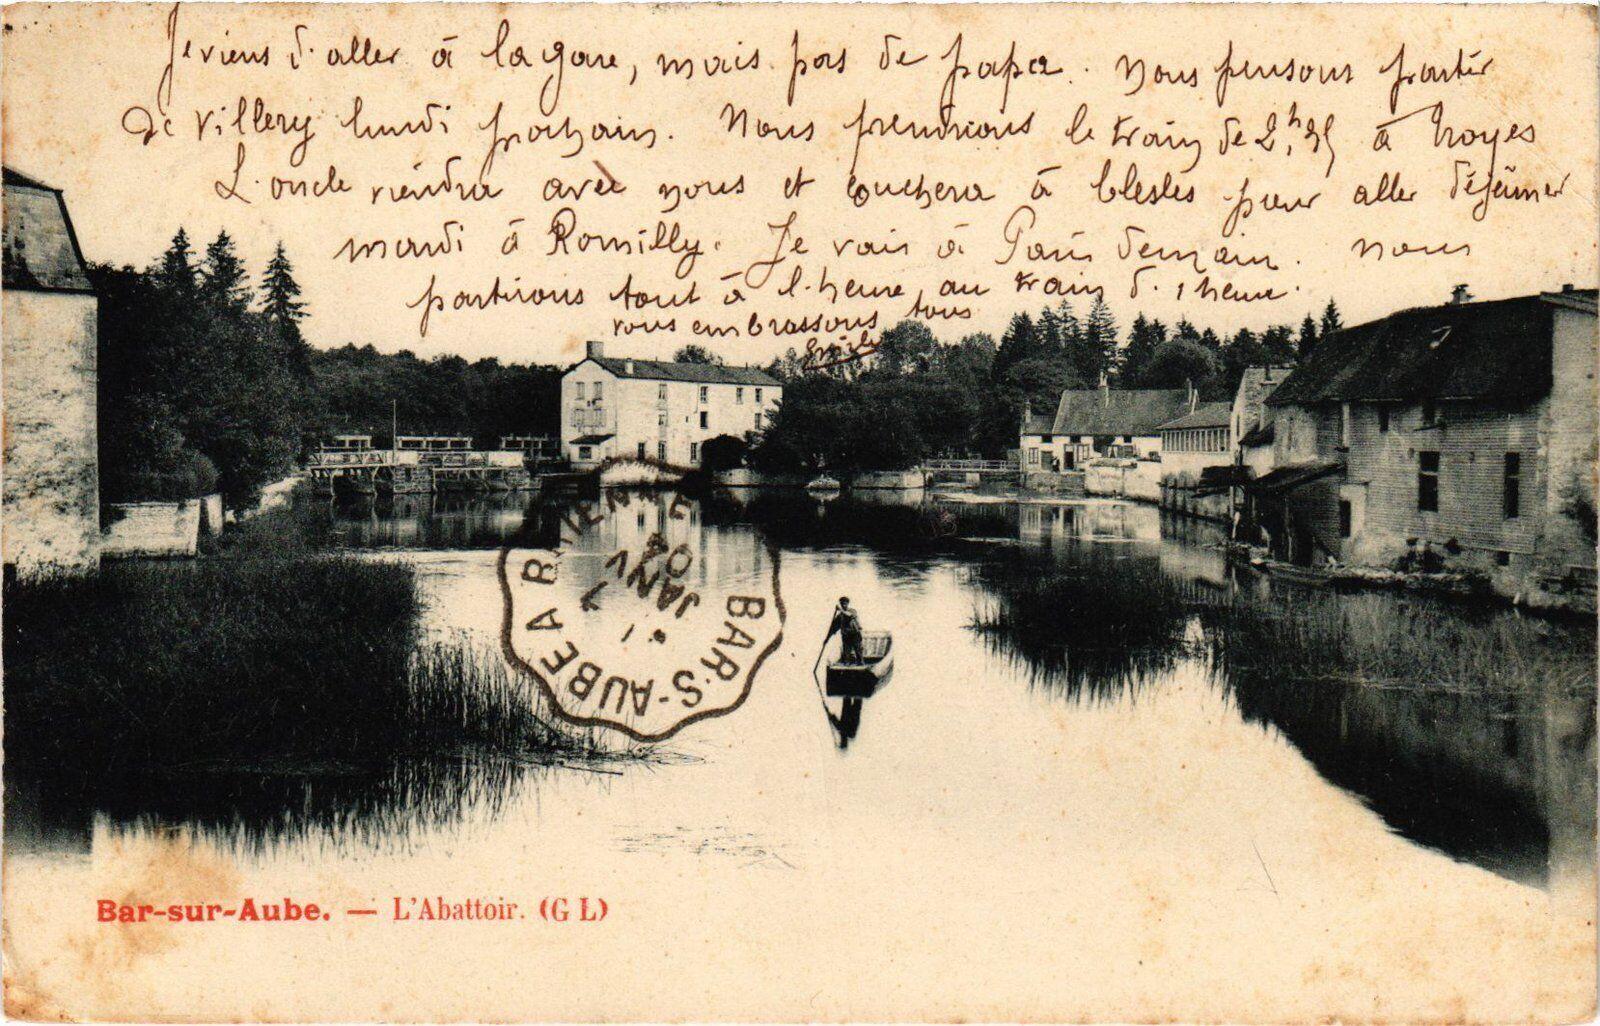 Je viens d'aller à la gare, mais pas de papa. Nous pensons partir
de Villery lundi prochain. Nous prendrons le train de 2h, à Troyes
L'oncle viendra avec nous et couchera à Clesles pour aller déjeûner
mardi à Romilly. Je vais à Paris demain. Nous
partirons tout à l'heure, au train d'1 heure.
vous embrassons tous
BAR-S-AUBE A BRIENNE
1
7
JANV
04
Bar-sur-Aube. — L'Abattoir. (G L)